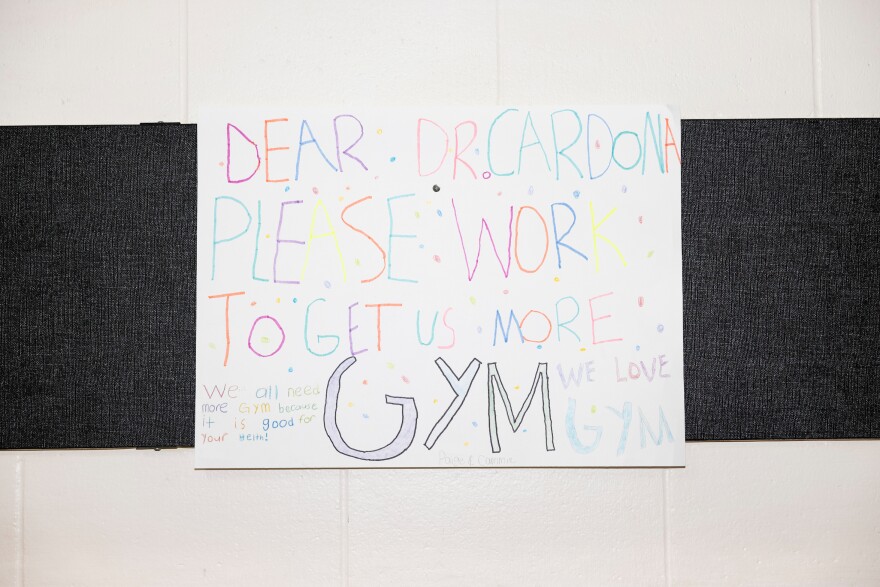 DEAR DR. CARDONA
PLEASE WORK
TO GET US MORE
GYM
We all need
more Gym because
it is good for
your Helth!
WE LOVE
GYM